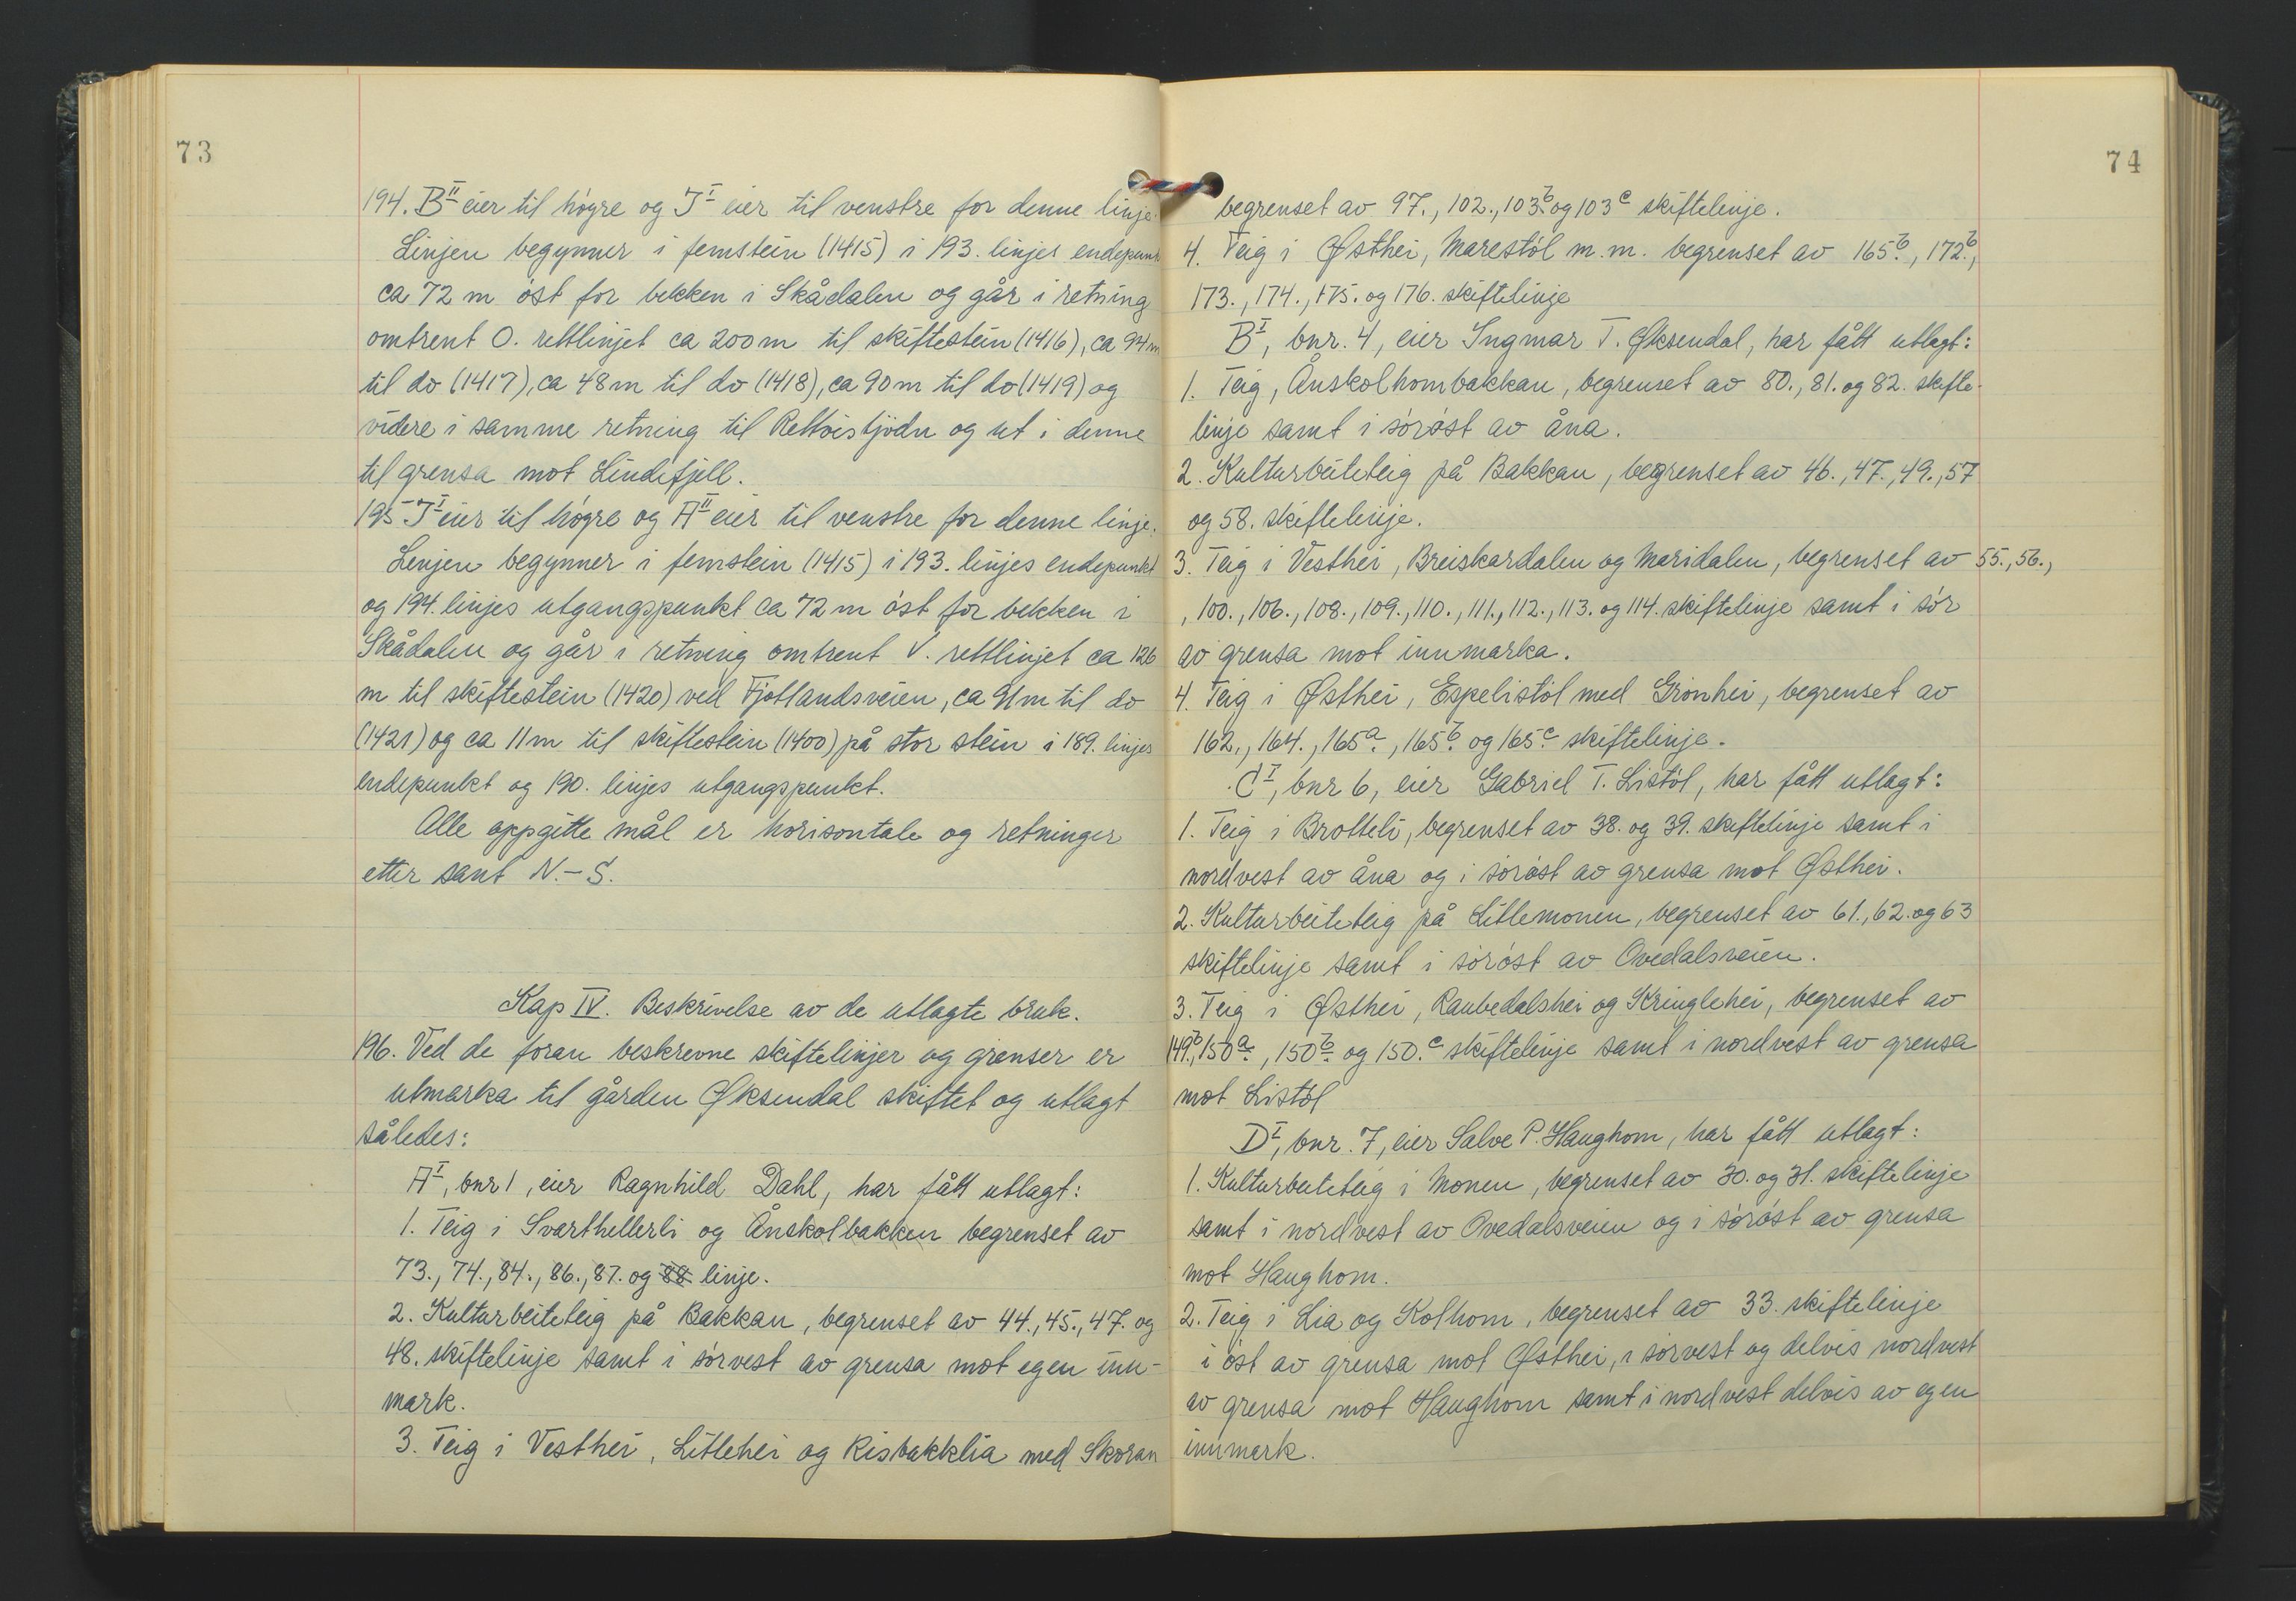 73
194. B<sup>II</sup> eier til høgre og J<sup>I</sup> eier til venstre for denne linje.
Linjen begynner i femstein (1415) i 193. linjes endepunkt
ca 72 m øst for bekken i Skådalen og går i retning
omtrent O. rettlinjet ca 200 m til skiftestein (1416), ca 94 m
til do (1417), ca 48 m til do (1418), ca 90 m til do (1419) og
videre i samme retning til Rettvistjødn og ut i denne
til grensa mot Lindefjell.
195 J<sup>I</sup> eier til høgre og A<sup>II</sup> eier til venstre for denne linje.
Linjen begynner i femstein (1415) i 193. linjes endepunkt
og 194. linjes utgangspunkt ca 72 m øst for bekken i
Skådalen og går i retning omtrent V. rettlinjet ca 126
m til skiftestein (1420) ved Fjotlandsveien, ca 91 m til do
(1421) og ca 11 m til skiftestein (1400) på stor stein i 189. linjes
endepunkt og 190. linjes utgangspunkt.
Alle oppgitte mål er horisontale og retninger
etter sant N.-S.
Kap IV. Beskrivelse av de utlagte bruk.
196. Ved de foran beskrevne skiftelinjer og grenser er
utmarka til gården Øksendal skiftet og utlagt
således:
A<sup>I</sup>, bnr 1, eier Ragnhild Dahl, har fått utlagt:
1. Teig i Svarthellerli og Ånskolbakken begrenset av
73., 74., 84., 86., 87. og 88 linje.
2. Kulturbeiteteig på Bakkan, begrenset av 44., 45., 47. og
48. skiftelinje samt i sørvest av grensa mot egen inn-
mark.
3. Teig i Vesthei, Litlehei og Risbakklia med Skoran
74
begrenset av 97., 102., 103<sup>b</sup>. og 103<sup>c</sup> skiftelinje.
4. Teig i Østhei, Marestøl m.m. begrenset av 165<sup>b</sup>., 172<sup>b</sup>.,
173., 174., 175. og 176. skiftelinje
B<sup>I</sup>, bnr. 4, eier Ingmar T. Øksendal, har fått utlagt:
1. Teig, Ånskolhombakkan, begrenset av 80., 81. og 82. skifte-
linje samt i sørøst av åna.
2. Kulturbeiteteig på Bakkan, begrenset av 46., 47., 49., 57
og 58. skiftelinje.
3. Teig i Vesthei, Breiskardalen og Maridalen, begrenset av 55., 56.,
, 100., 106., 108., 109., 110., 111., 112., 113. og 114. skiftelinje samt i sør
av grensa mot innmarka.
4. Teig i Østhei, Espelistøl med Grønhei, begrenset av
162., 164., 165<sup>a</sup>., 165<sup>b</sup>. og 165<sup>c</sup> skiftelinje.
C<sup>I</sup>, bnr 6, eier Gabriel T. Listøl, har fått utlagt:
1. Teig i Brotteli, begrenset av 38. og 39. skiftelinje samt i
nordvest av åna og i sørøst av grensa mot Østhei.
2. Kulturbeiteteig på Litlemonen, begrenset av 61., 62. og 63
skiftelinje samt i sørøst av Ovedalsveien.
3. Teig i Østhei, Raubedalshei og Kringlehei, begrenset av
149<sup>b</sup>., 150<sup>a</sup>., 150<sup>b</sup>. og 150.<sup>c</sup> skiftelinje samt i nordvest av grensa
mot Listøl
D<sup>I</sup>, bnr. 7, eier Salve P. Haughom, har fått utlagt:
1. Kulturbeiteteig i Monen, begrenset av 30. og 31. skiftelinje
samt i nordvest av Ovedalsveien og i sørøst av grensa
mot Haughom.
2. Teig i Lia og Kolhom, begrenset av 33. skiftelinje
i øst av grensa mot Østhei, i sørvest og delvis nordvest
av grensa mot Haughom samt i nordvest delvis av egen
innmark.